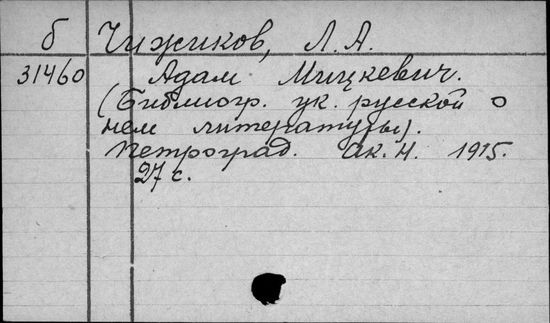 б Чижиков, Л. А.
31460 Адам Мицкевич.
(Библиогр. ук. русской о
нем литературы).
Петроград. Ак. Н. 1915.
27 с.